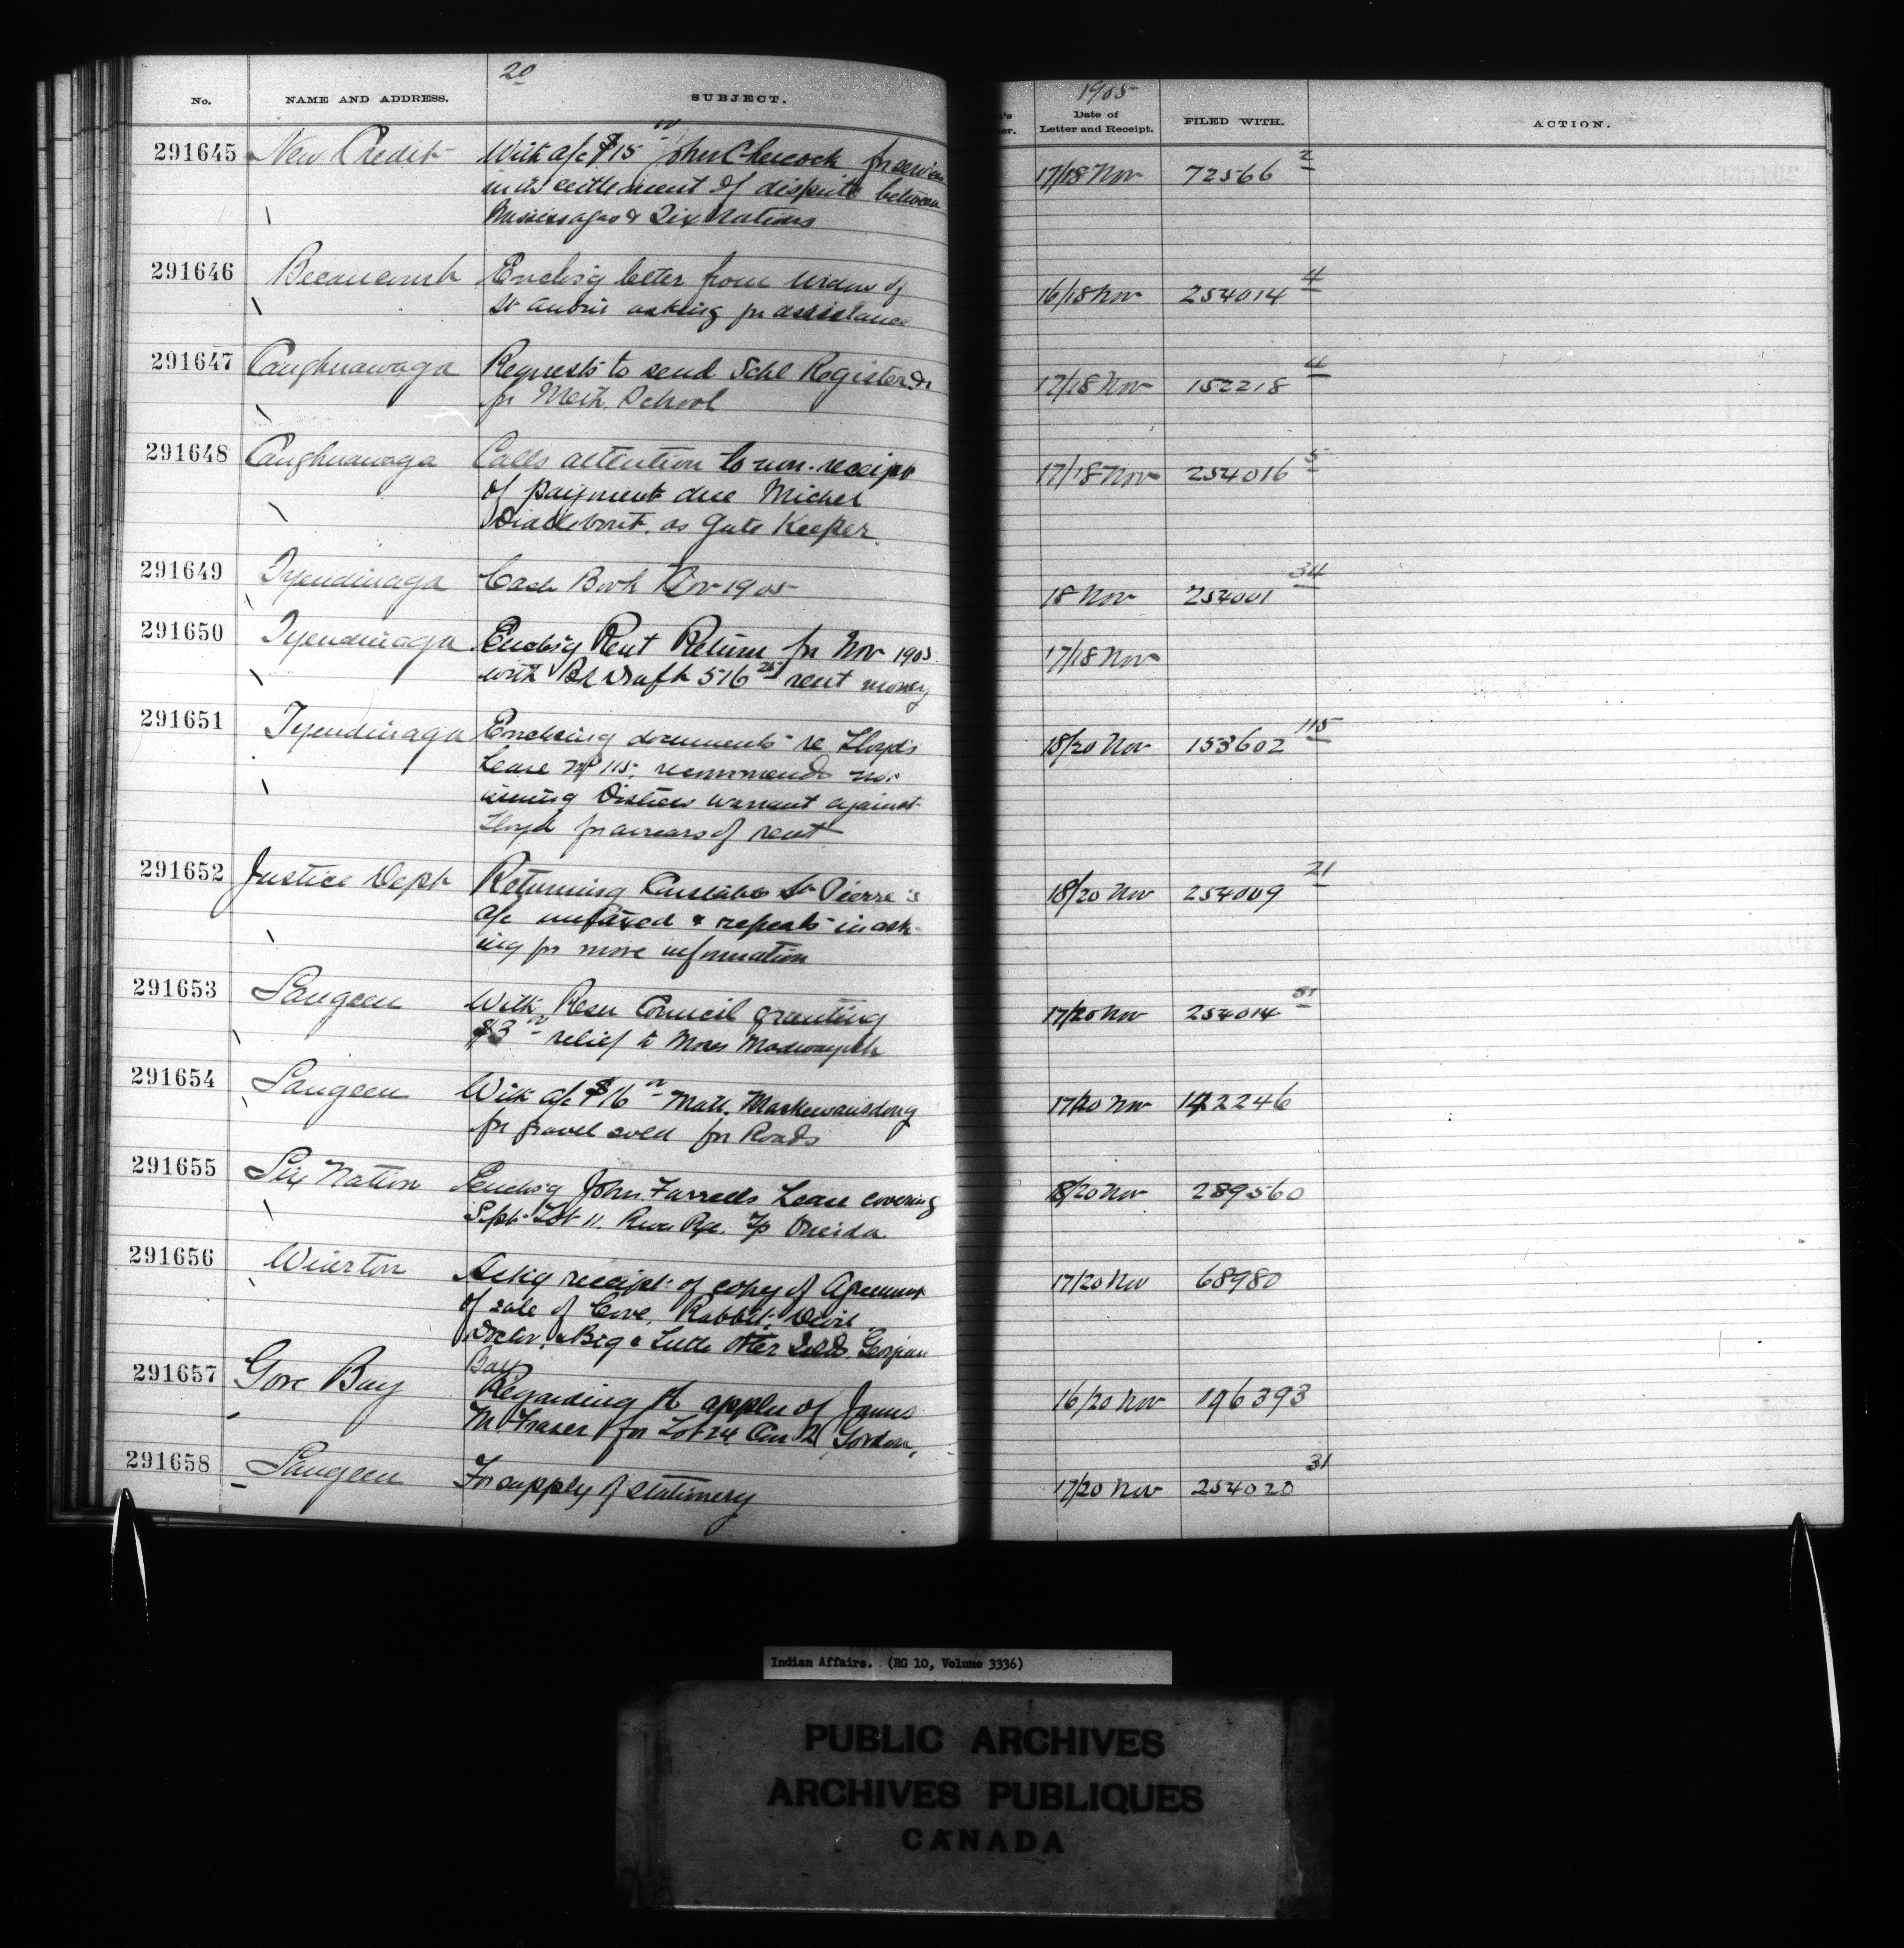 20
No. NAME AND ADDRESS. SUBJECT.
1905
Date of Letter and Receipt. FILED WITH. ACTION.
291645 New Credit With a/c $15 00 John for services 17/18 Nov 72566 2
in settlement of dispute between
Mississagas & Six Nations
291646 Becancourt Enclos'g letter from widow of 16/18 Nov 254014 4
St Aubin asking for assistance
291647 Caughnawaga Requests to send Schl Register &c 17/18 Nov 152218 4
for Meth. School
291648 Caughnawaga Calls attention to non-receipt 17/18 Nov 254016 5
of payment due Michel
as Gate Keeper.
291649 Tyendinaga Cash Book Nov 1905 18 Nov 254001 34
291650 Tyendinaga Enclos'g Rent Return for Nov 1905 17/18 Nov
with Bk Draft 516 25 rent money
291651 Tyendinaga Enclosing documents re Lloyd's 18/20 Nov 153602 115
Lease No 115, recommends not
issuing Distress warrant against
Lloyd for arrears of rent
291652 Justice Dept Returning Constable St Pierre's 18/20 Nov 254009 21
a/c untaxed & repeats in ask-
ing for more information
291653 Saugeen With Resn Council granting 17/20 Nov 254014 81
$3 00 relief to Moses
291654 Saugeen With a/c $16 00 Matt. 17/20 Nov 142246
for gravel sold for Roads
291655 Six Nation Enclos'g John Farrell's Lease covering 18/20 Nov 289560
S pt Lot 11, River Rge. Tp Oneida
291656 Wiarton Ackg receipt of copy of Agreement 17/20 Nov 68980
of sale of Cove, Rabbit, Devil
Doctor, & Big & Little Otter Islds. Georgian
Bay
291657 Gore Bay Regarding the appln of James 16/20 Nov 196393
M. Fraser for Lot 24 Con 2 Gordon,
291658 Saugeen For supply of stationery 17/20 Nov 254020 31
Indian Affairs. (RG 10, Volume 3336)
PUBLIC ARCHIVES
ARCHIVES PUBLIQUES
CANADA